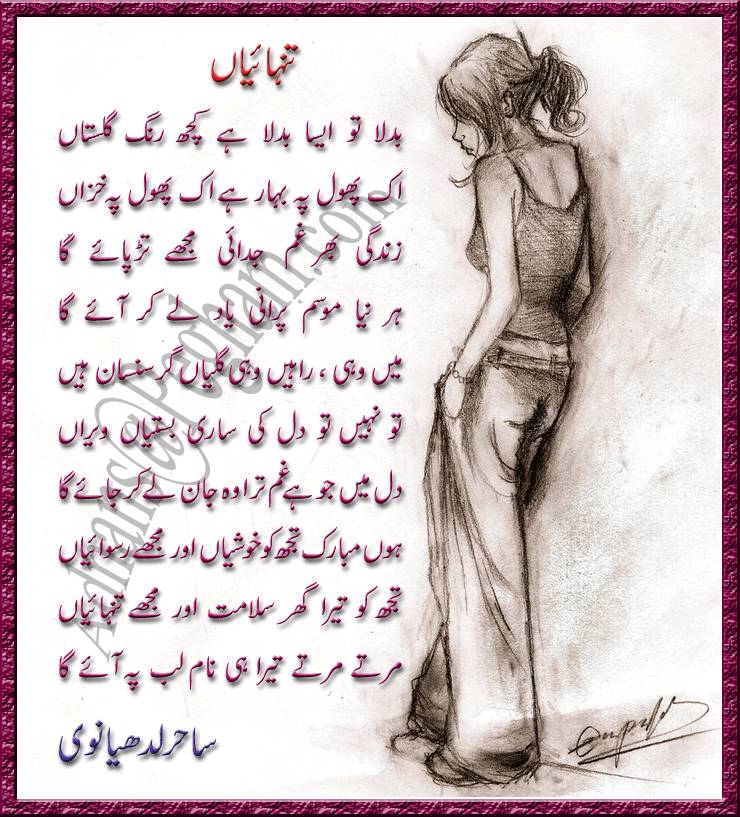 تنہائیاں
بدلا تو ایسا بدلا ہے کچھ رنگ گلستاں
اک پھول پہ بہار ہے اک پھول پہ خزاں
زندگی بھر غم جدائی مجھے تڑپائے گا
ہر نیا موسم پرانی یاد لے کر آئے گا
میں وہی ، راہیں وہی گلیاں گر سنسان ہیں
تو نہیں تو دل کی ساری بستیاں ویراں
دل میں جو ہے غم ترا وہ جان لے کر جائے گا
ہوں مبارک تجھ کو خوشیاں اور مجھے رسوائیاں
تجھ کو تیرا گھر سلامت اور مجھے تنہائیاں
مرتے مرتے تیرا ہی نام لب پہ آئے گا
ساحر لدھیانوی